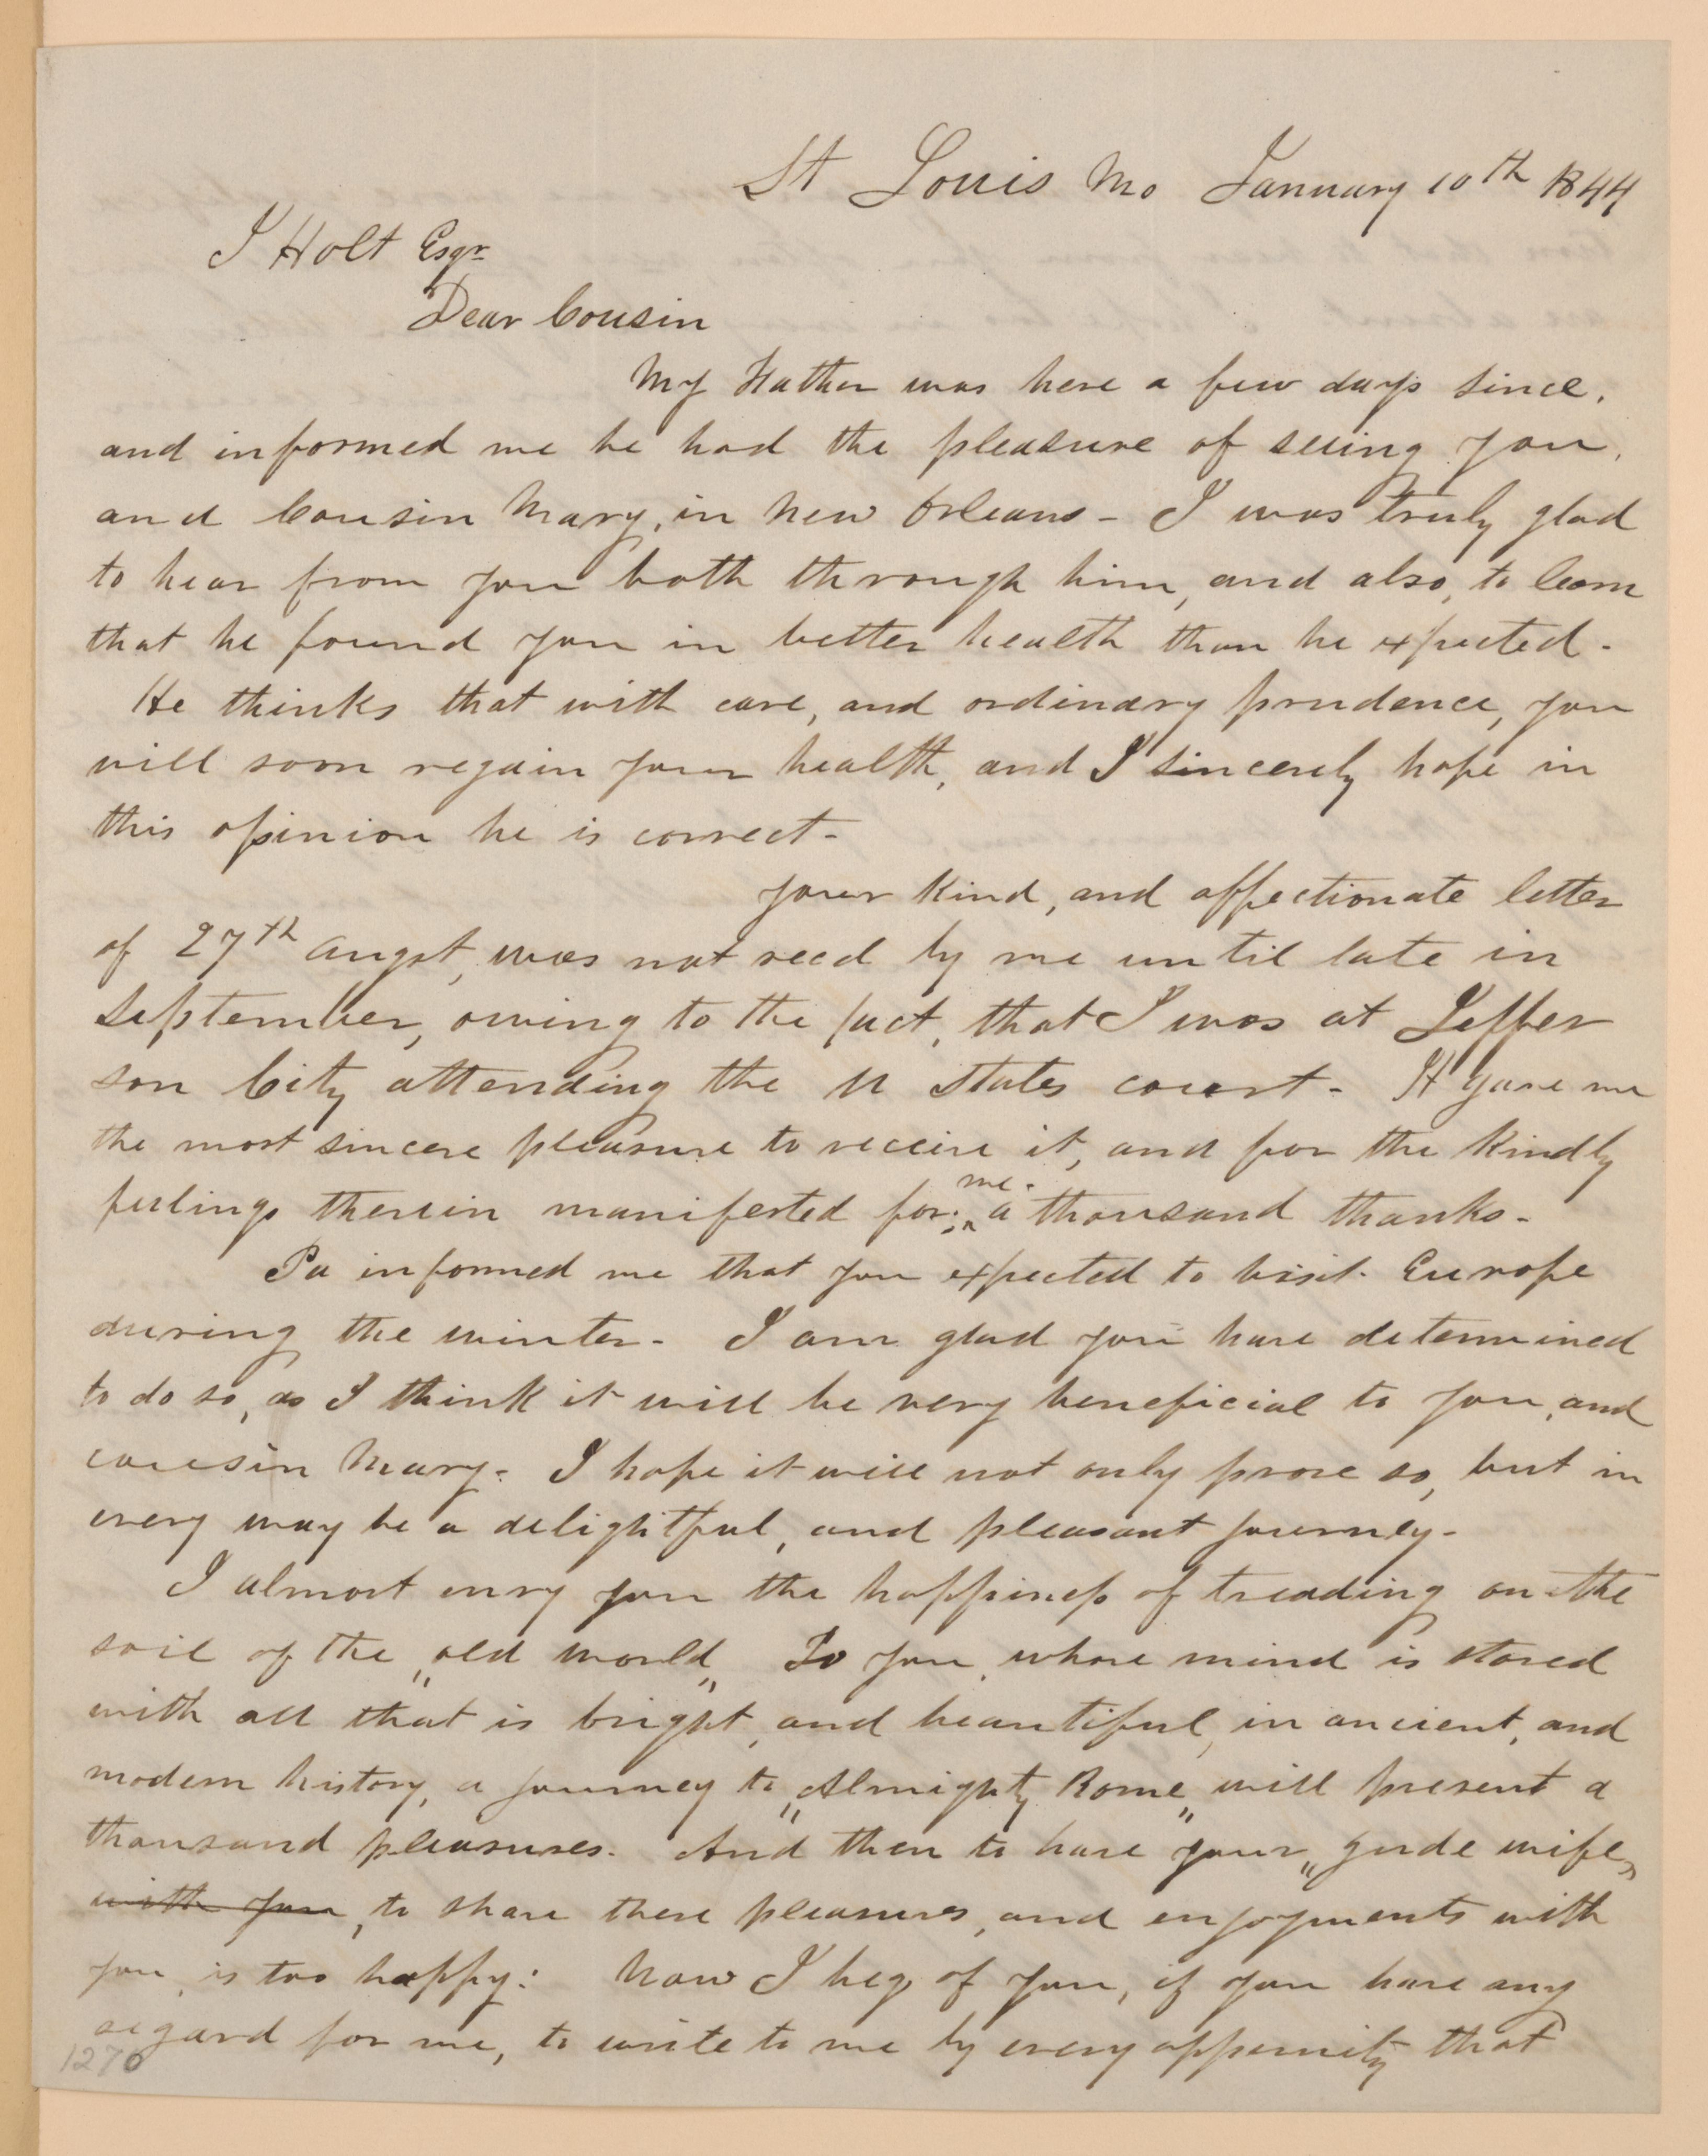 St Louis Mo January 10th 1844
J Holt Esqr
Dear Cousin
My Father was here a few days since,
and informed me he had the pleasure of seeing you,
and Cousin Mary, in New Orleans - I was truly glad
to hear from you both through him, and also, to learn
that he found you in better health than he expected -
He thinks that with care, and ordinary prudence, you
will soon regain your health, and I sincerely hope in
this opinion he is correct -
your kind, and affectionate letter
of 27th Augst, was not recd by me until late in
September, owing to the fact, that I was at Jeffer
son City attending the U States court - It gave me
the most sincere pleasure to receive it, and for the kindly
feelings therein manifested for me. a thousand thanks -
Pa informed me that you expected to visit Europe
during the winter - I am glad you have determined
to do so, as I think it will be very beneficial to you, and
cousin Mary - I hope it will not only prove so, but in
every way be a delightful, and pleasant journey -
I almost envy you the happiness of treading on the
soil of the „old world„ To you, whose mind is stored
with all that is bright, and beautiful, in ancient, and
modern history, a journey to „Almighty Rome„ will present a
thousand pleasures. And then to have your „gude wife„
with you, to share these pleasures, and enjoyments with
you, is too happy: Now I beg of you, if you have any
regard for me, to write to me by every oppernity that
1270